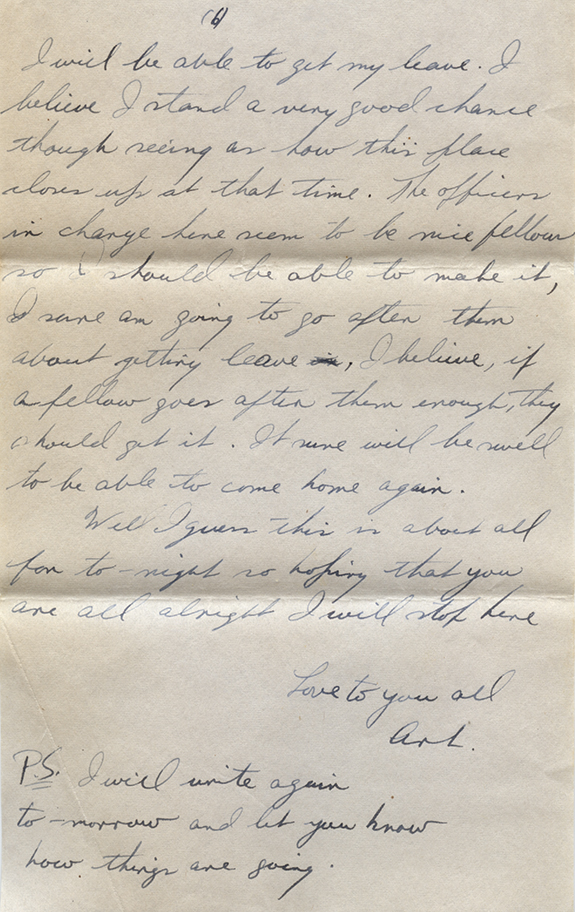 (6)
I will be able to get my leave. I
believe I stand a very good chance
though seeing as how this place
closes up at that time. The officers
in charge here seem to be nice fellows
so I should be able to make it,
I sure am going to go after them
about getting leave in, I believe, if
a fellow goes after them enough, they
should get it. It sure will be swell
to be able to come home again.
Well I guess this is about all
for to-night so hoping that you
are all alright I will stop here
Love to you all
Art.
P.S. I will write again
to-morrow and let you know
how things are going.